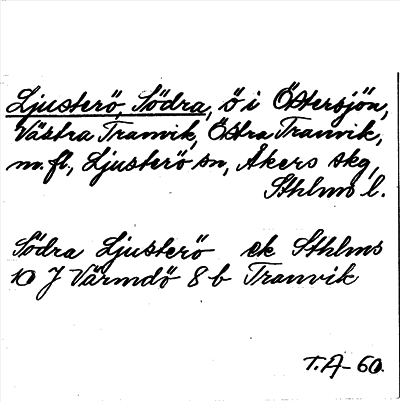 Ljusterö, Södra, ö i Östersjön,
Västra Tranvik, Östra Tranvik,
m.fl., Ljusterö sn, Åkers skg,
Sthlms l.
Södra Ljusterö ek Sthlms
10 J Värmdö 8 b Tranvik
T.A-60.